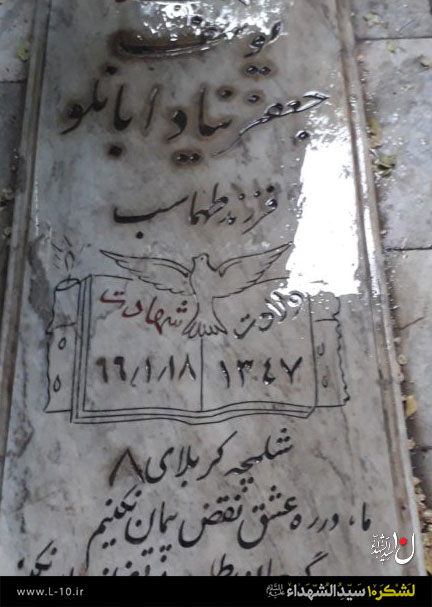 یوسف
جعفر نیاد ابانلو
فرزند طهماسب
ولادت
شهادت
۱۳۴۷
۶۶/۱/۱۸
شلمچه کربلای ۸
ما، در ره عشق نقض پیمان نکنیم
www.L-10.ir
لشکر۱۰ سیدالشهداء